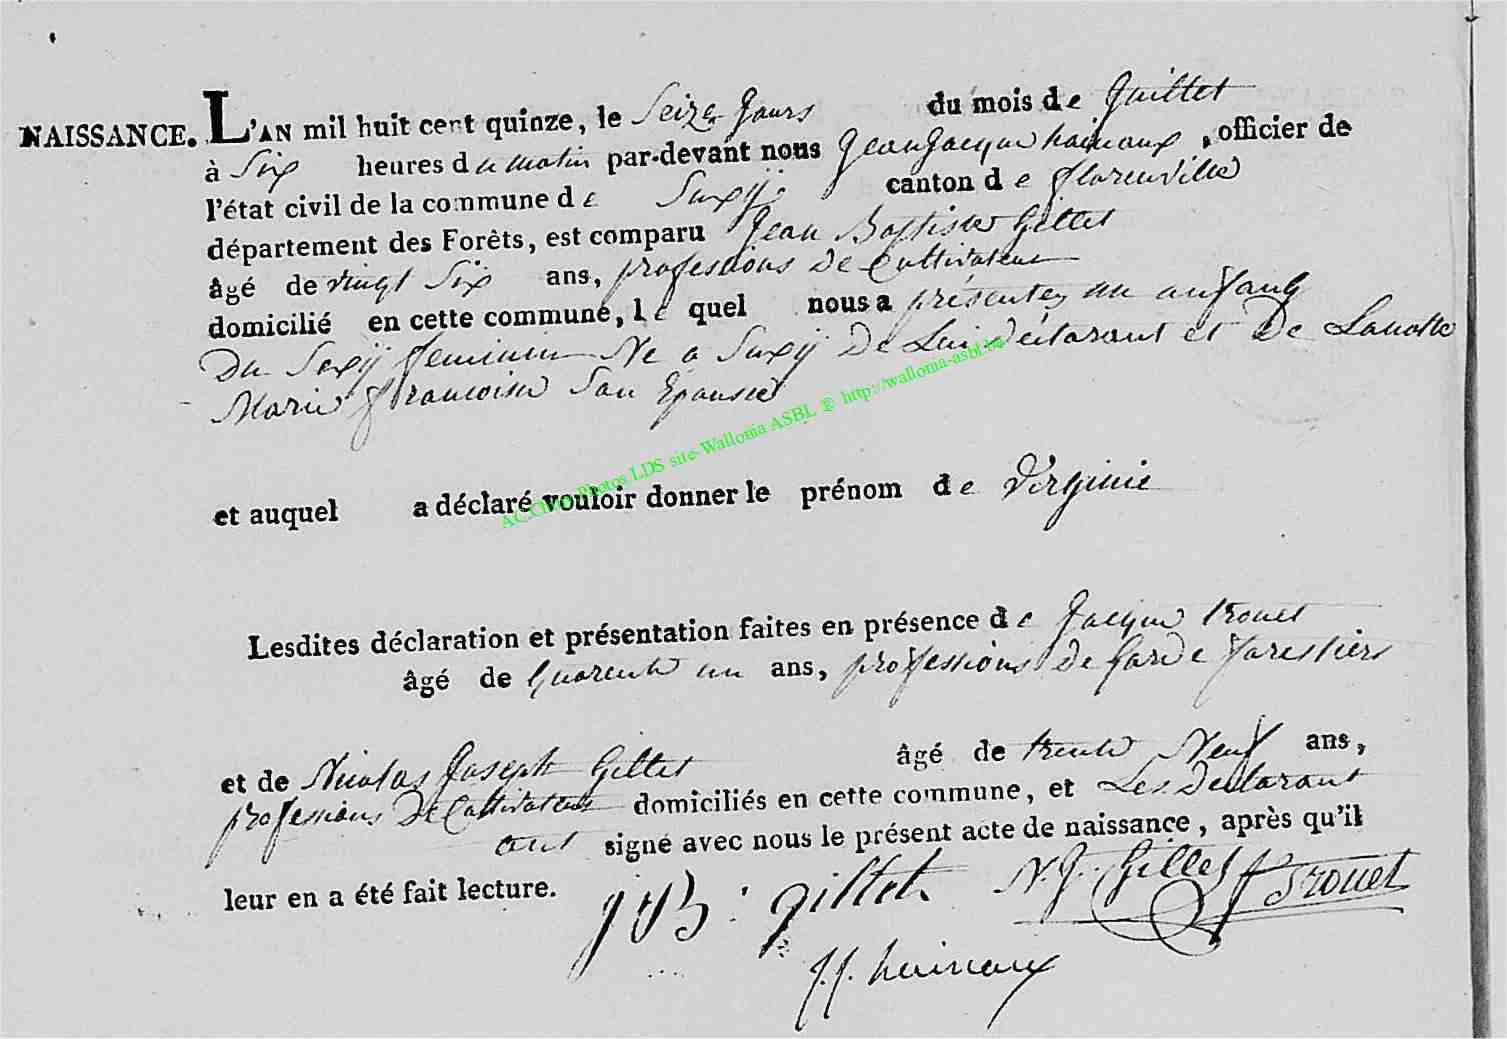 NAISSANCE. L'AN mil huit cent quinze, le Seize Jours du mois de Juillet
à Six heures du matin par-devant nous Jean Jacque hainaux, officier de
l'état civil de la commune de Suxÿ canton de florenville
département des Forêts, est comparu Jean Baptiste Gillet
âgé de vingt Six ans, professions De Cultivateur
domicilié en cette commune, le quel nous a présentez un anfang
Du Sexÿ feminin Ne a Suxÿ De Lui déclarant et De Lanotte
Marie francoise Son Epouse
et auquel a déclaré vouloir donner le prénom de Virginie
ACChus Photos LDS site-Wallonia ASBL © http://wallonia-asbl.be
Lesdites déclaration et présentation faites en présence de Jacque trouet
âgé de Quarente un ans, professions de Garde forestiers
et de Nicolas Joseph Gillet âgé de trente Neuf ans,
professions De Cultivateur domiciliés en cette commune, et Les Declarant
ont signé avec nous le présent acte de naissance, après qu'il
leur en a été fait lecture. J B : gillet N. J. Gillet J Trouet
J. J. hainaux